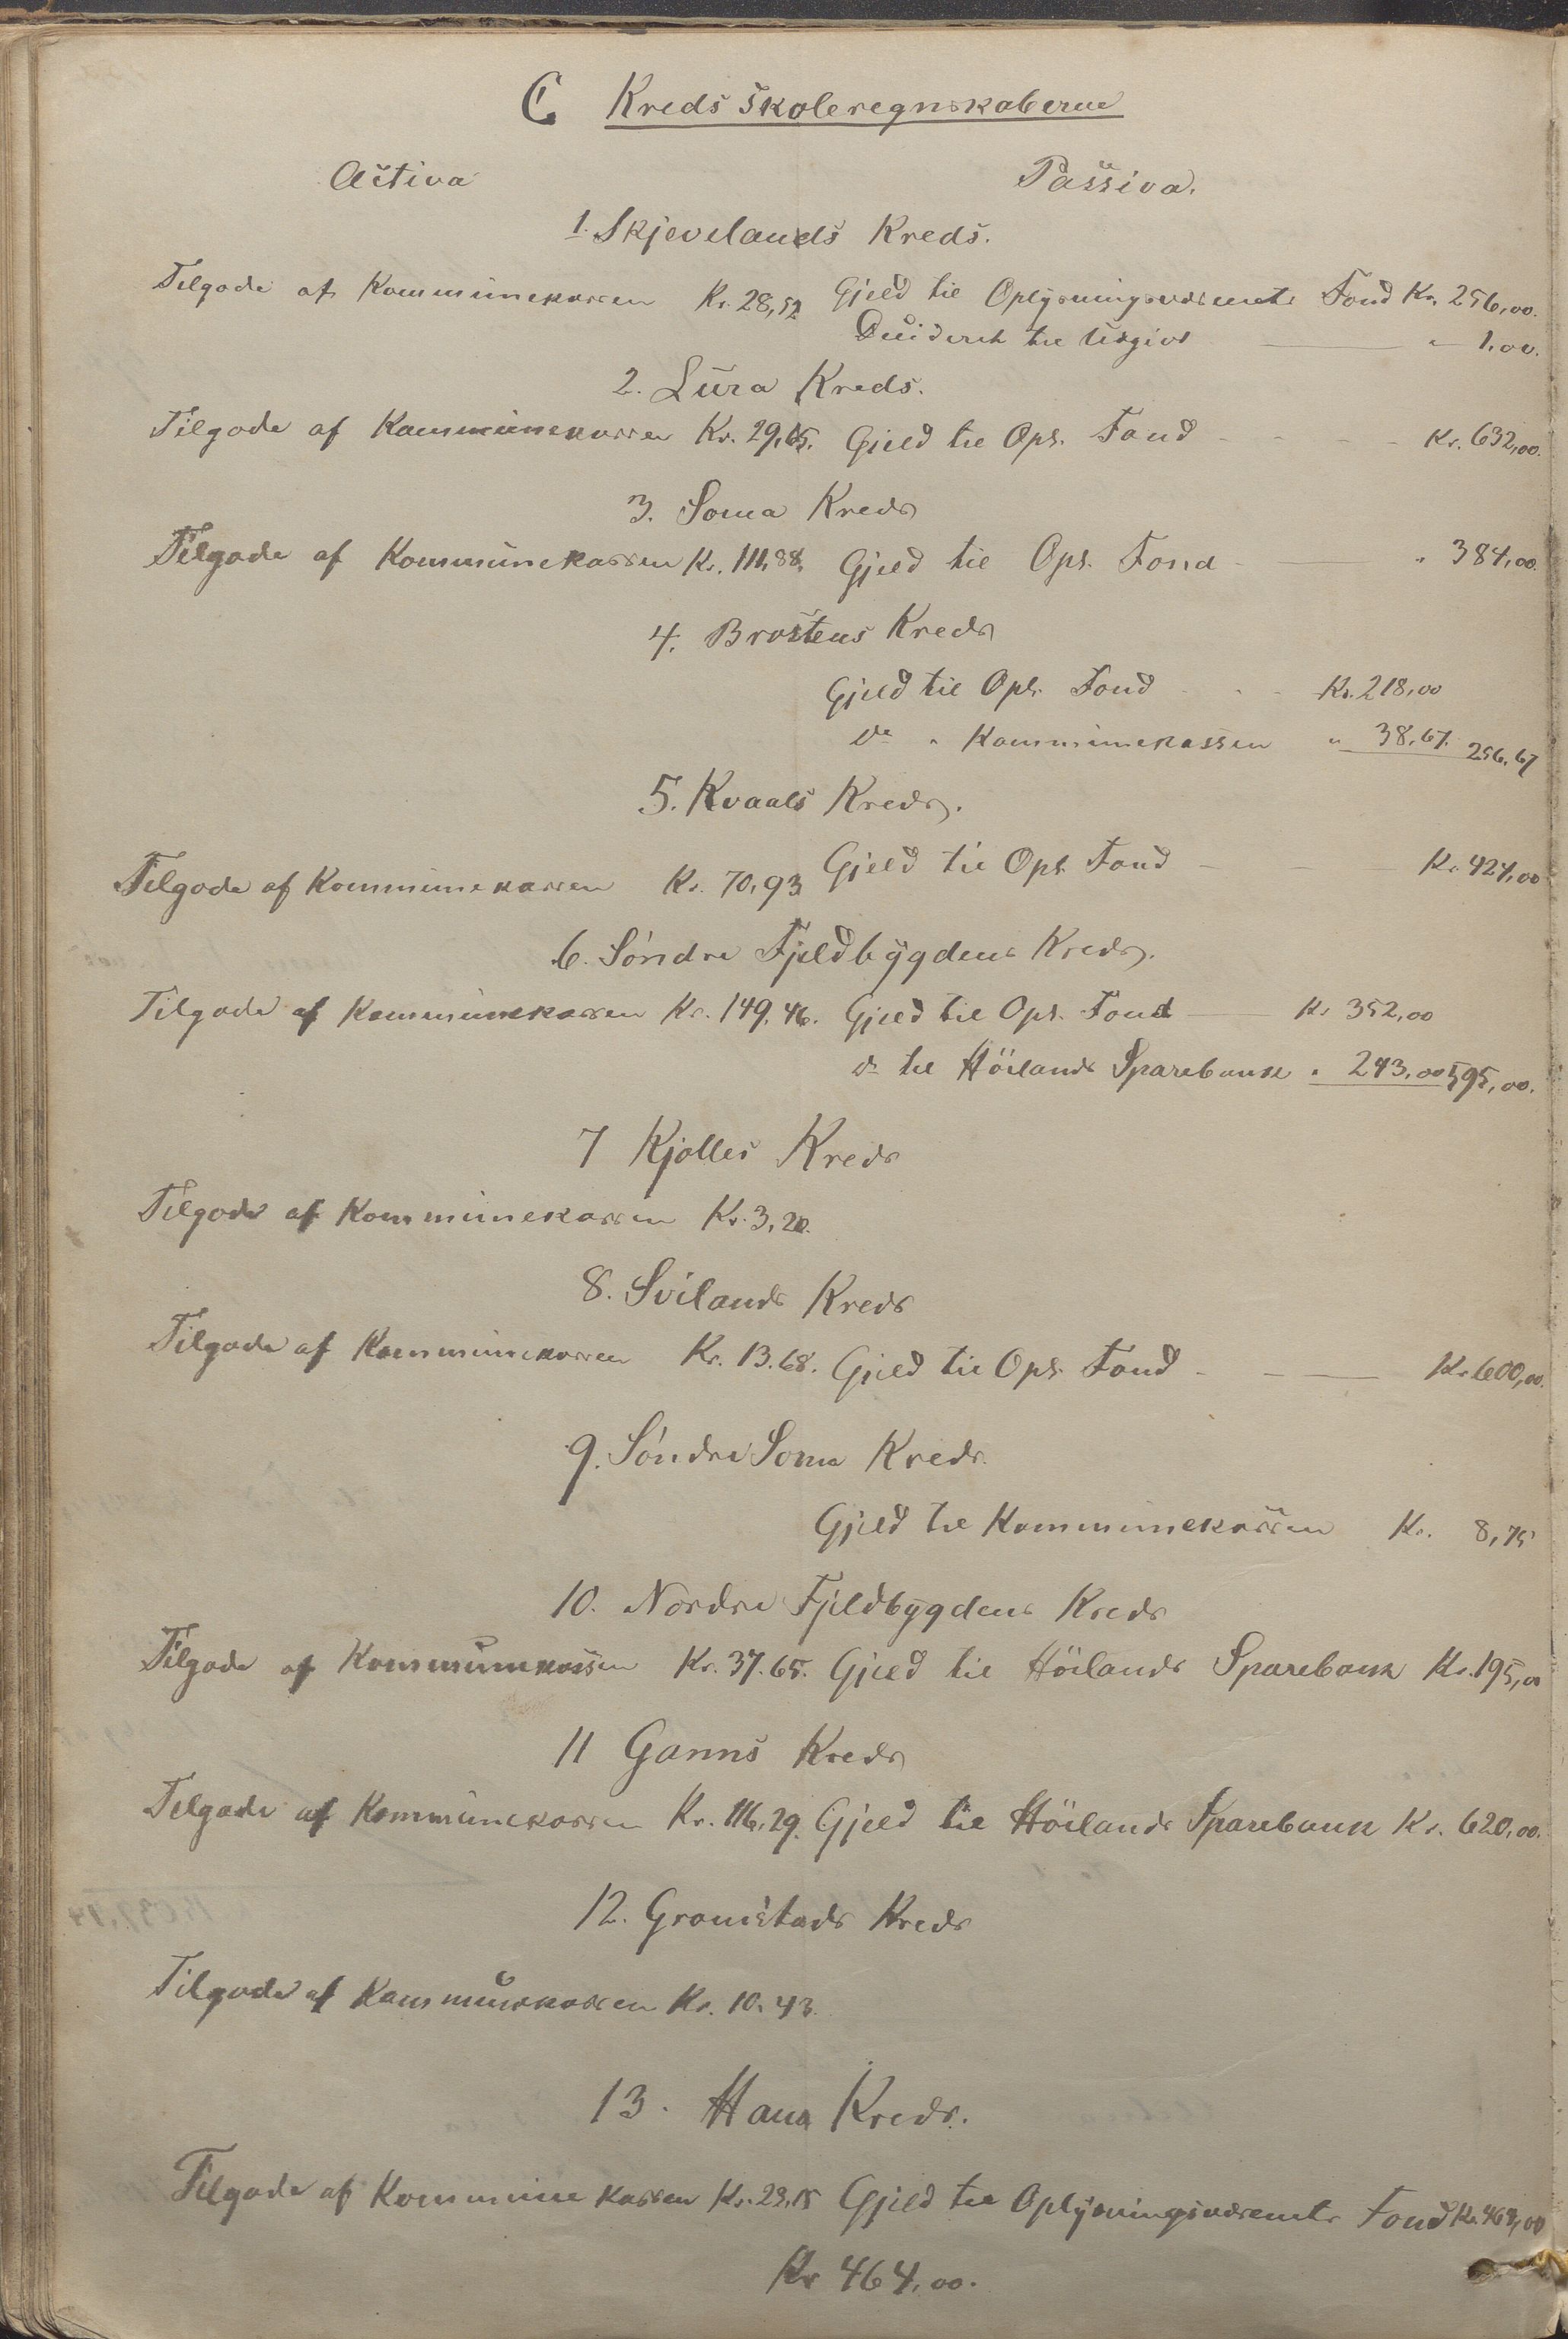 C Kredsskoleregnskaberne
Activa Passiva.
1. Skjevelands Kreds.
Tilgode af Kommunekassen Kr. 28,52 Gjeld til Oplysningsvæsenets Fond Kr. 256,00.
til Udgivt " 1.00.
2. Lura Kreds.
Tilgode af Kommunekassen Kr. 29,65. Gjeld til Opl. Fond Kr. 632,00.
3. Soma Kreds
Tilgode af Kommunekassen Kr. 111,88. Gjeld til Opl. Fond " 384,00.
4. Brostens Kreds
Gjeld til Opl. Fond Kr. 218,00
do " Kommunekassen " 38,67. 256,67
5. Kvaals Kreds.
Tilgode af Kommunekassen Kr. 70,93 Gjeld til Opl. Fond Kr. 424,00
6. Söndre Fjeldbygdens Kreds.
Tilgode af Kommunekassen Kr. 149,46. Gjeld til Opl. Fond Kr 352,00
do til Höilands Sparebank " 243,00 595,00.
7 Kjolles Kreds
Tilgode af Kommunekassen Kr. 3,20.
8. Svilands Kreds
Tilgode af Kommunekassen Kr. 13.68. Gjeld til Opl. Fond Kr. 600,00.
9. Söndre Soma Kreds.
Gjeld til Kommunekassen Kr. 8,75
10. Nordre Fjeldbygdens Kreds
Tilgode af Kommunekassen Kr. 37.65. Gjeld til Höilands Sparebank Kr. 195,00
11 Ganns Kreds
Tilgode af Kommunekassen Kr. 116,29. Gjeld til Höilands Sparebank Kr. 620,00.
12. Gramstads Kreds
Tilgode af Kommunekassen Kr. 10.43.
13. Hana Kreds.
Tilgode af Kommunekassen Kr. 23,15 Gjeld til Oplysningsvæsenets Fond Kr. 464,00
Kr 464,00.